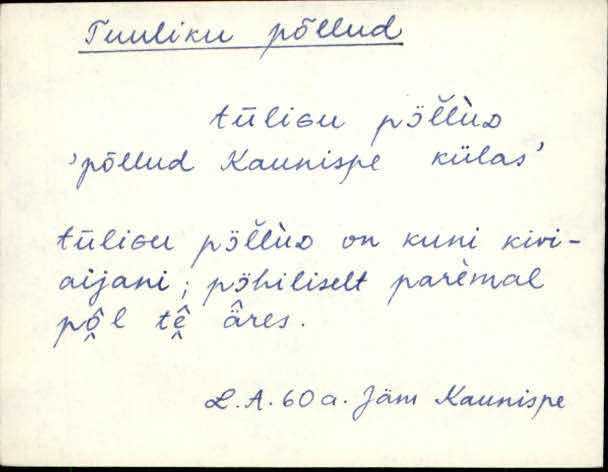 Tuuliku põllud
tūliɢu pö̆l̆lùᴅ
'põllud Kaunispe külas'
tūliɢu pö̆l̆lùᴅ on kuni kivi-
aijani; pöhiliselt parèmal
pö̭̂l tḙ̂ ä̂res.
L.A. 60 a. Jäm Kaunispe